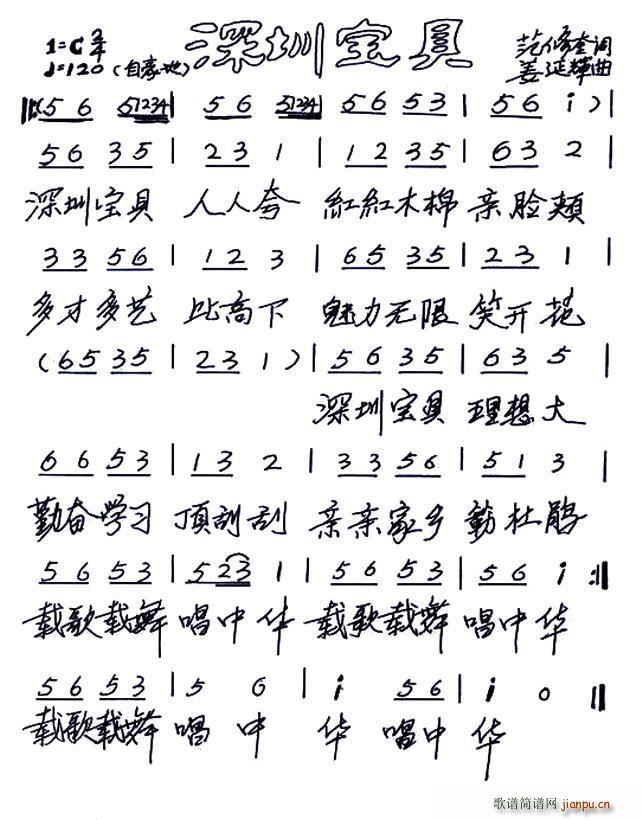 深圳宝贝
1=C 2/4
♩=120(自豪地)
范修奎词
姜延辉曲
‖: (5 6 51234 | 5 6 51234 | 5 6 5 3 | 5 6 i )
5 6 3 5 | 2 3 1 | 1 2 3 5 | 6 3 2 |
深圳宝贝 人人夸 红红木棉 亲脸颊
3 3 5 6 | 1 2 3 | 6 5 3 5 | 2 3 1 |
多才多艺 比高下 魅力无限 笑开花
( 6 5 3 5 | 2 3 1 ) | 5 6 3 5 | 6 3 5 |
深圳宝贝 理想大
6 6 5 3 | 1 3 2 | 3 3 5 6 | 5 1 3 |
勤奋学习 顶刮刮 亲亲家乡 簕杜鹃
5 6 5 3 | 5 2 3 1 | 5 6 5 3 | 5 6 i :‖
载歌载舞 唱中华 载歌载舞 唱中华
5 6 5 3 | 5 6 | i 5 6 | i 0 ‖
载歌载舞 唱 中 华 唱中 华
歌谱简谱网 jianpu.cn